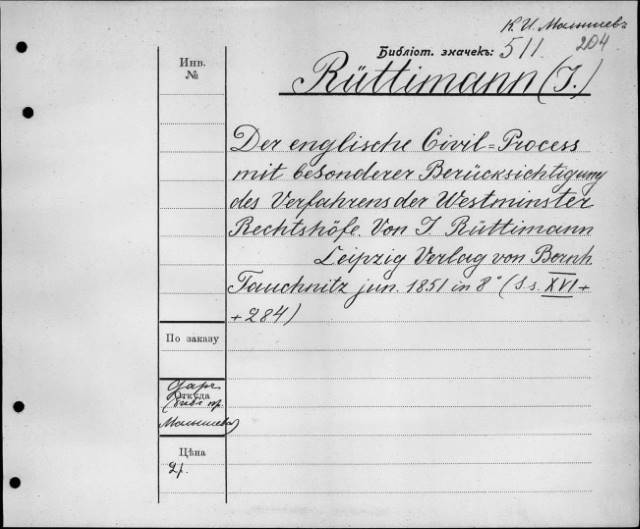 К. И. Малышевъ
Библіот. значекъ: 511 204
Инв.
№
Rüttimann (J.)
Der englische Civil=Process
mit besonderer Berücksichtigung
des Verfahrens der Westminster
Rechtshöfe. Von J. Rüttimann
Leipzig Verlag von Bernh.
Tauchnitz jun. 1851 in 8° (S.s. XVI +
+ 284)
По заказу
Откуда
Даръ
Малышева)
Цѣна
2 р.